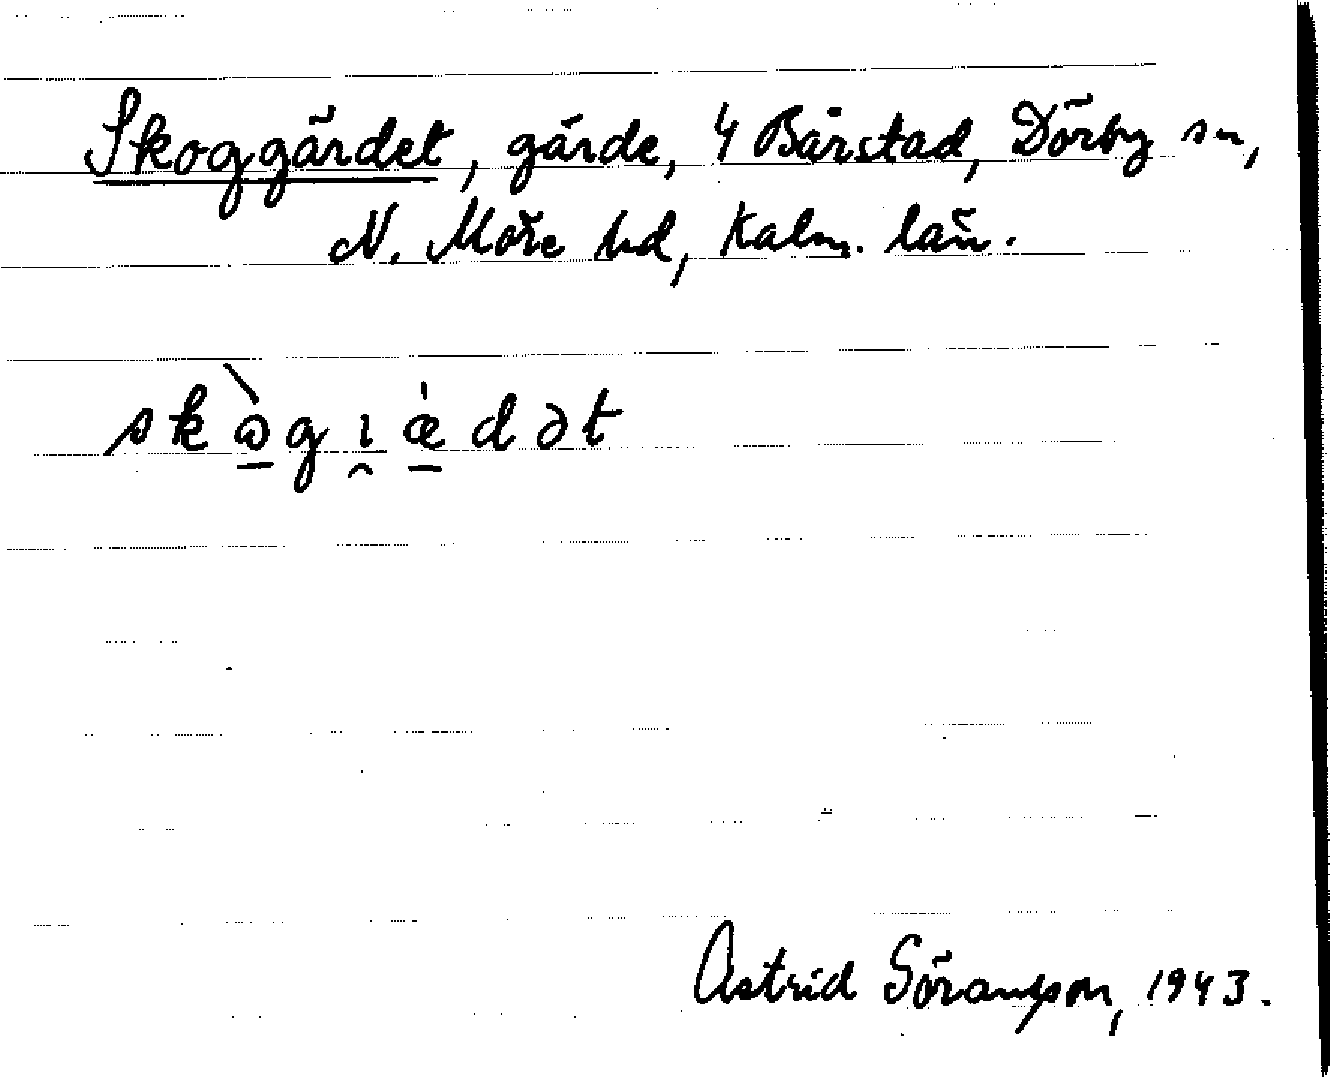 Skoggärdet, gärde, 4 Bårstad, Dörby sn,
N. Möre hd, Kalm. län.
skò̠gı̯æ̠̍dət
Astrid Göransson, 1943.